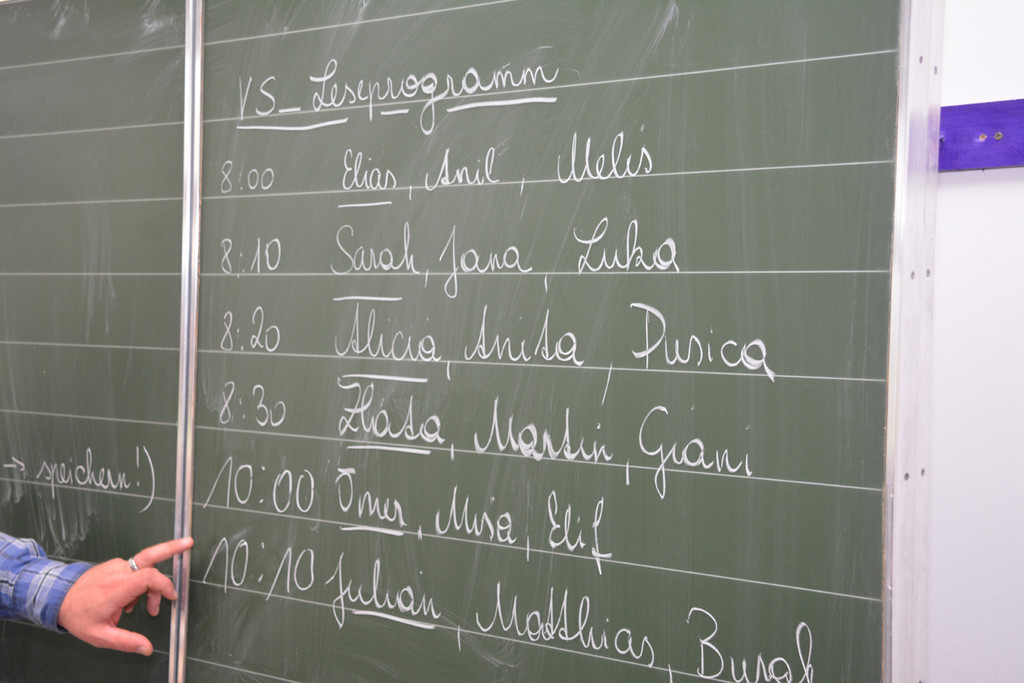 VS_Leseprogramm
8:00 Elias, Anil, Melis
8:10 Sarah, Jana, Luka
8:20 Alicia, Anita, Dusica
8:30 Zlata, Martin, Giani
→ speichern!)
10:00 Ömer, Misa, Elif
10:10 Julian, Matthias, Burak